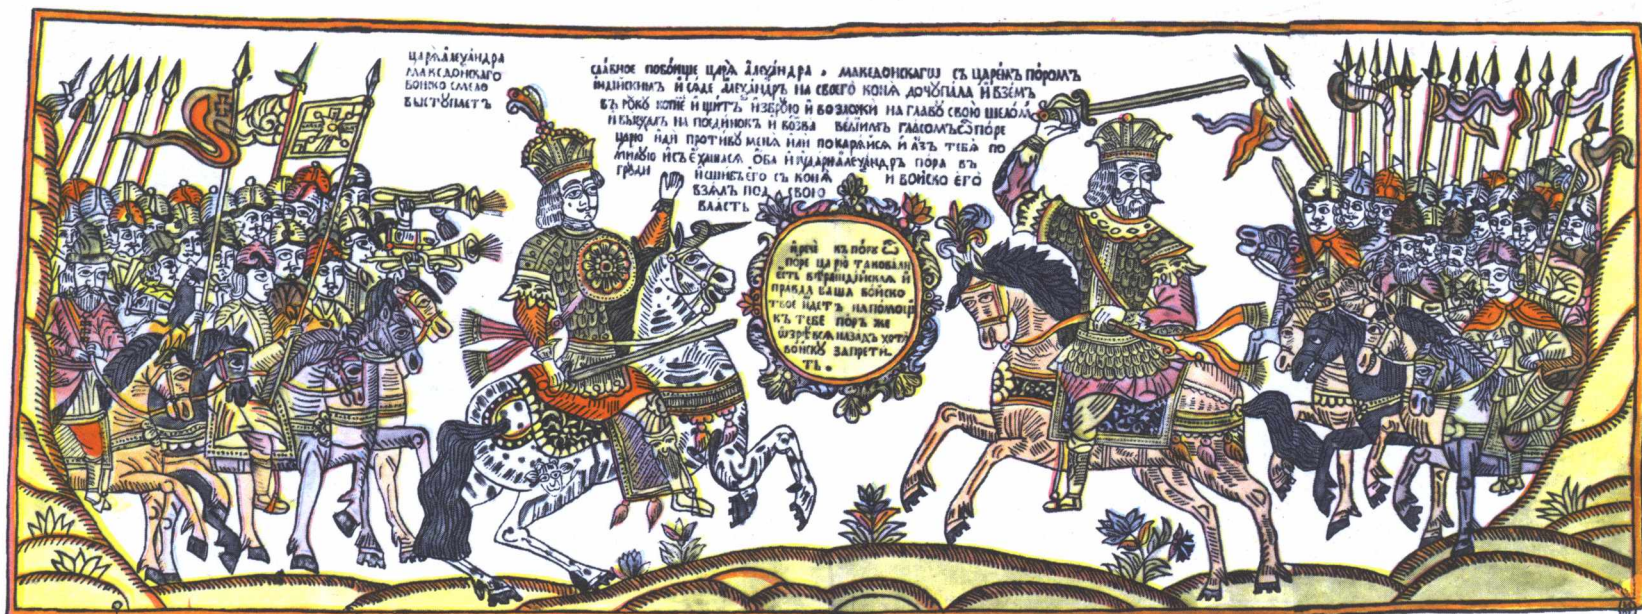 царѧ алеѯандра
македонскаго
воиско смело
выстꙋпаетъ
славное побоище царѧ алеѯандра македонскагѡ съ царемъ поромъ
индиискимъ и сѧде алеѯандръ на своего конѧ дочꙋпала и вземъ
въ рꙋкꙋ копие и щитъ и збрꙋю и возложи на главꙋ свою шеломъ
и выѣхалъ на поединокъ и возва велиимъ гласомъ ѽ поре
царю иди противꙋ меня или покарѧисѧ и азъ тебѧ по
милꙋю исъѣхашасѧ оба и ꙋдари алеѯандръ пора въ
грꙋди и сшибъ его съ конѧ и воиско его
взѧлъ под свою
власть
ире къ порꙋ ѽ
поре царю такова ли
есть индиискаѧ и
правда ваша воиско
твое идетъ на помощ
къ тебе поръ же
ѡзрѣвсѧ назадъ хотѧ
воискꙋ запрети
ть.